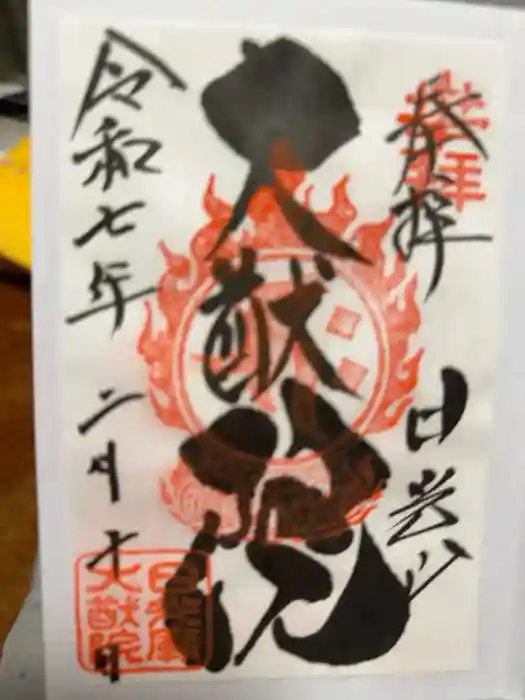 奉拝
奉拝
日光山
大猷院
令和七年二月十日
日光山
大猷院